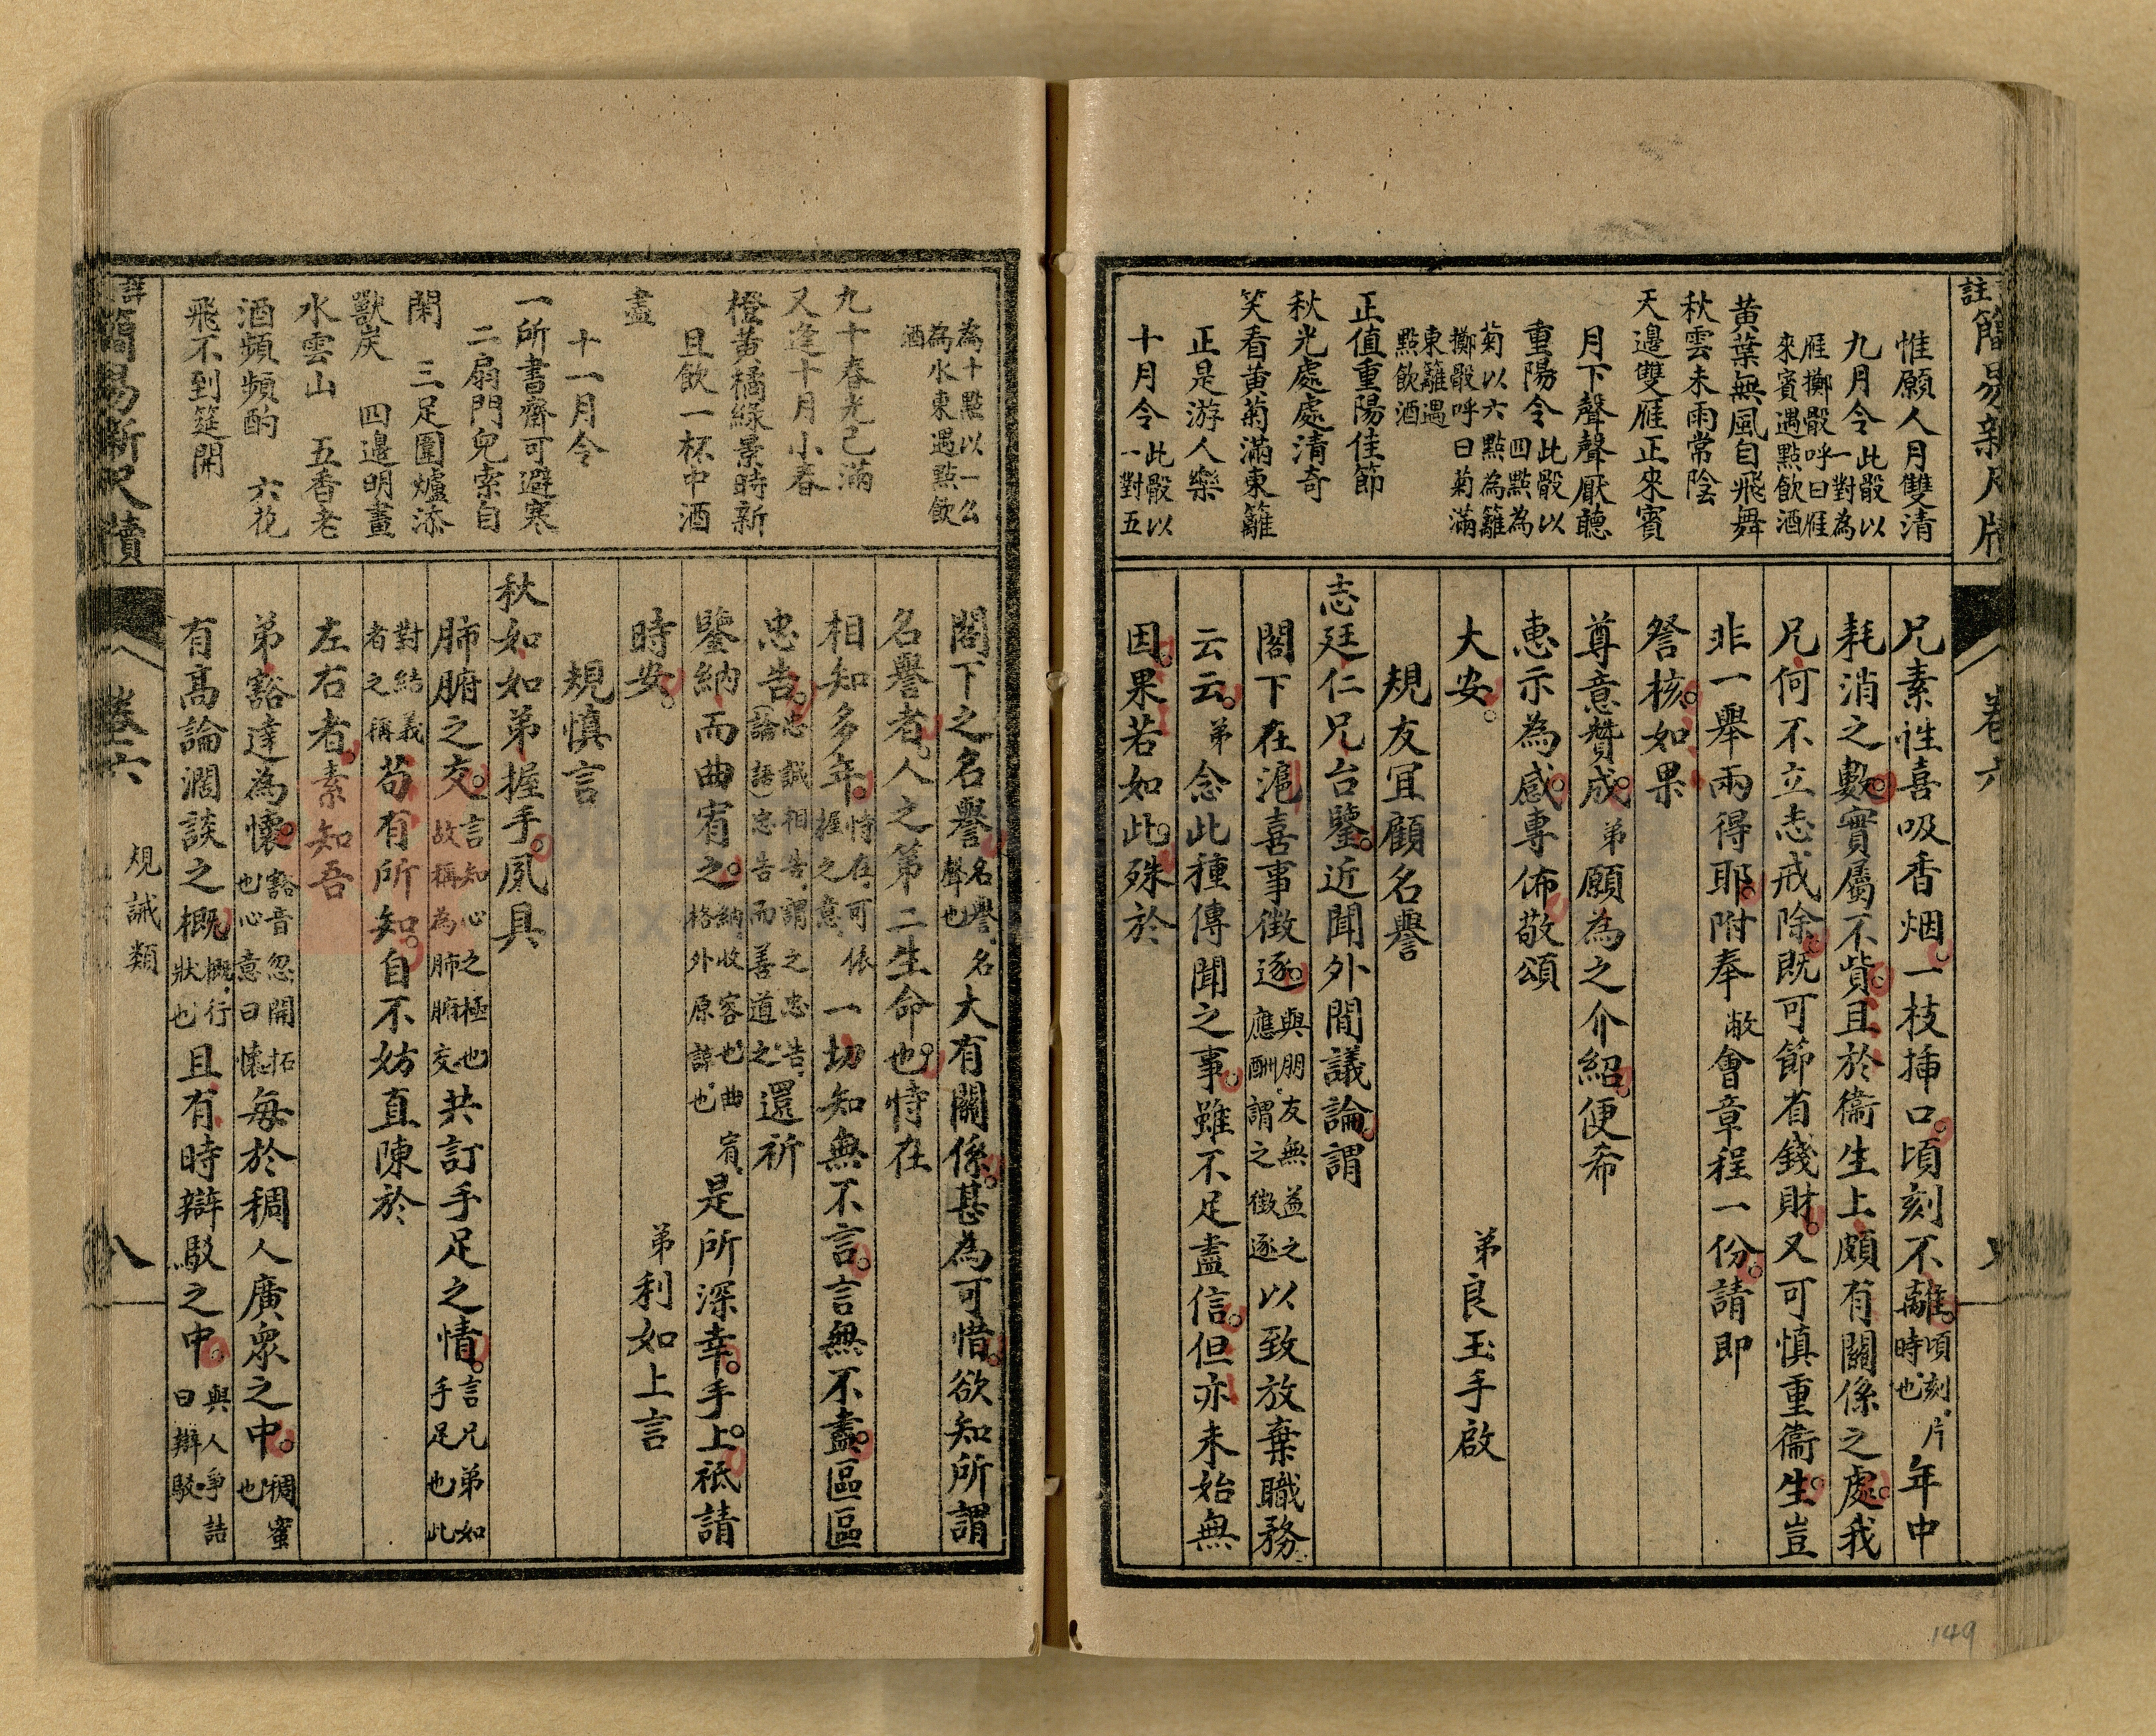 惟願人月雙清
九月令此骰以一對為
雁擲骰呼曰雁
來賓遇點飲酒
黃葉無風自飛舞
秋雲未雨常陰
天邊雙雁正來賓
月下聲聲厭聽
重陽令此骰以四點為
菊以六點為籬
擲骰呼曰菊滿
東籬遇
點飲酒
正值重陽佳節
秋光處處清奇
笑看黃菊滿東籬
正是游人樂
十月令此骰以一對五
兄素性喜吸香烟。一枝插口。頃刻不離。頃刻。片時也。年中
耗消之數。實屬不貲。且於衞生上頗有關係之處。我
兄何不立志戒除。既可節省錢財。又可慎重衞生。豈
非一舉兩得耶。附奉敝會章程一份。請即
詧核。如果
尊意贊成。弟願為之介紹。便希
惠示為感。專佈敬頌
大安。
弟良玉手啟
規友宜顧名譽
志廷仁兄台鑒。近聞外間議論。謂
閣下在滬。喜事徵逐。與朋友無益之應酬。謂之徵逐以致放棄職務
云云。弟念此種傳聞之事。雖不足盡信。但亦未始無
因。果若如此。殊於
卷六
149
為十點以一么
為水東遇點飲
酒
九十春光已滿
又逢十月小春
橙黃橘綠景時新
且飲一杯中酒
盡
十一月令
一所書齋可避寒
二扇門兒索自
閑 三足圍爐添
獸炭 四邊明畫
水雲山 五香老
酒頻頻酌 六花
飛不到筵開
閣下之名譽名譽。名聲也大有關係。甚為可惜。欲知所謂
名譽者。人之第二生命也。恃在
相知多年。恃在。可依握之意。一切知無不言。言無不盡。區區
忠告。忠誠相告。謂之忠告。（論語）忠告而善道之。還祈
鑒納而曲宥之。納。收容也。曲宥。格外原諒也。是所深幸。手上。祗請
時安。
弟利如上言
規慎言
秋如如弟握手。夙具
肺腑之交。言知心之極也故稱為肺腑交共訂手足之情。言兄弟如手足也此
對結義者之稱苟有所知。自不妨直陳於
左右者。素知吾
弟豁達為懷。豁音忽開拓也心意曰懷每於稠人廣眾之中。稠蜜也
有高論濶談之概。概。行狀也且有時辯駁之中。與人爭詰曰辯駁
簡易新尺牘
卷六
規誡類
八